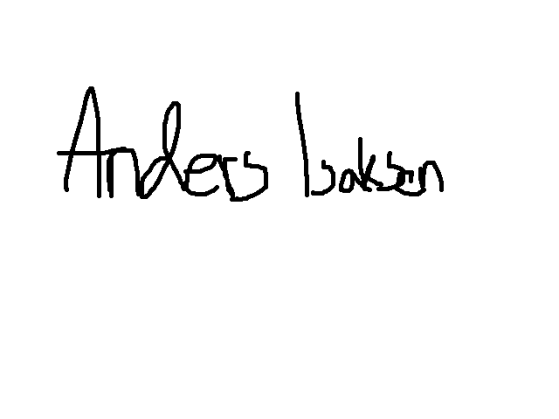 Anders Isaksen